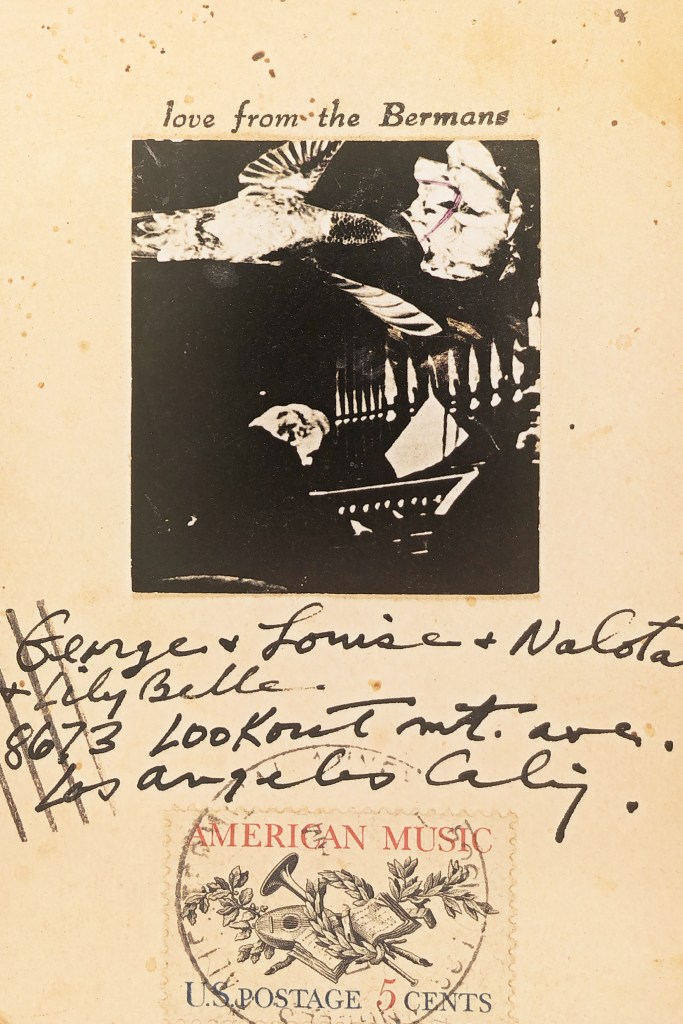 love from the Bermans
George + Louise + Nalota
+ Lily Belle.
8673 Lookout mt. ave.
Los angeles Calif.
AMERICAN MUSIC
U.S. POSTAGE 5 CENTS